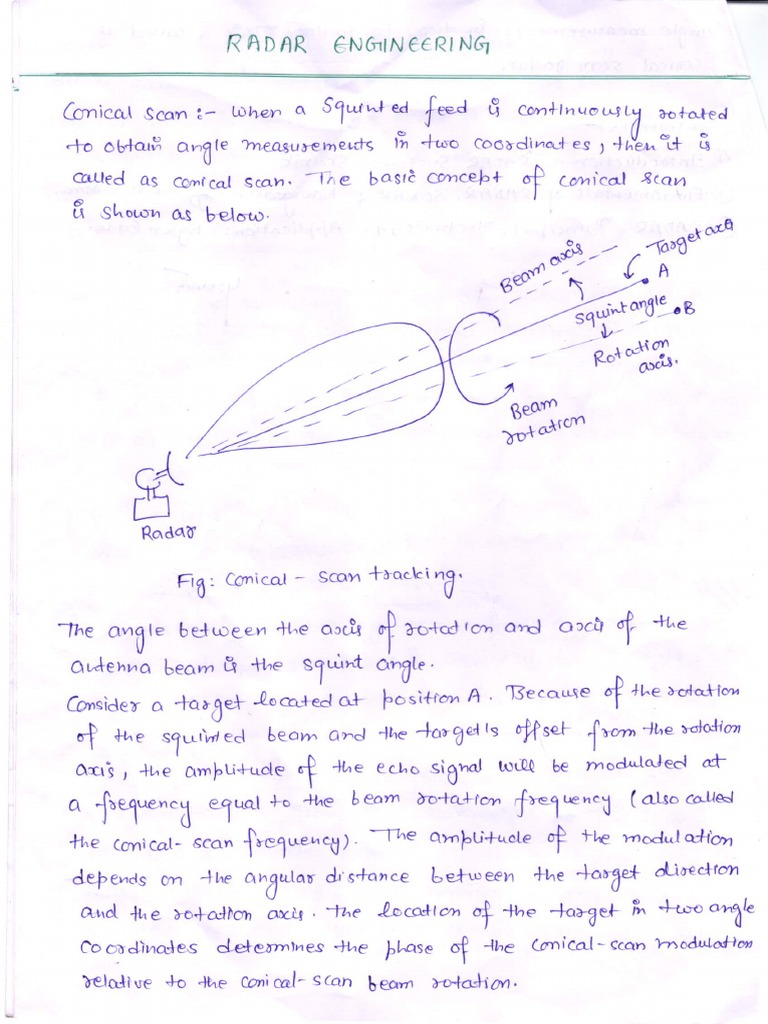 RADAR ENGINEERING
Conical scan :- When a Squinted feed is continuously rotated
to obtain angle measurements in two coordinates, then it is
called as conical scan. The basic concept of conical scan
is shown as below.
Beam axis
Target axis
A
Squint angle
B
Rotation
axis.
Beam
rotation
Radar
Fig: Conical - scan tracking.
The angle between the axis of rotation and axis of the
antenna beam is the squint angle.
Consider a target located at position A. Because of the rotation
of the squinted beam and the target's offset from the rotation
axis, the amplitude of the echo signal will be modulated at
a frequency equal to the beam rotation frequency (also called
the conical-scan frequency). The amplitude of the modulation
depends on the angular distance between the target direction
and the rotation axis. The location of the target in two angle
coordinates determines the phase of the conical-scan modulation
relative to the conical-scan beam rotation.